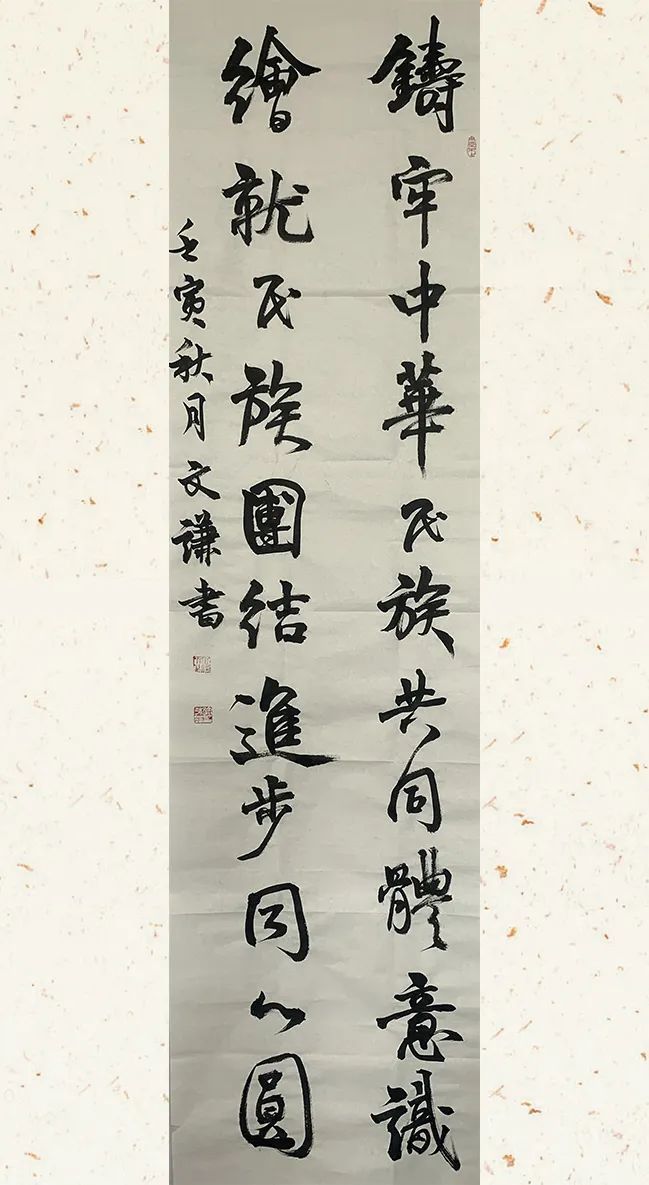 鑄牢中華民族共同體意識
繪就民族團結進步同心圓
壬寅秋月文謙書